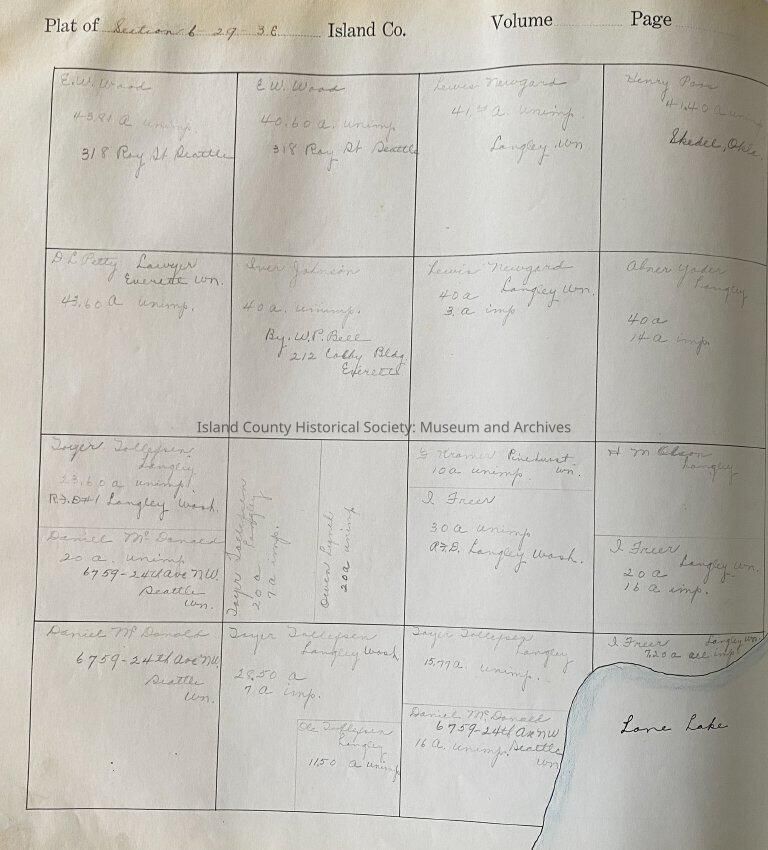 Plat of Section 6 - 29 - 3E Island Co. Volume Page
E.W. Wood
43.81 a unimp.
318 Roy St Seattle
E W. Wood
40.60 a. unimp
318 Roy St Seattle
Lewis Newgard
41. a. unimp.
Langley Wn.
Henry
41.40 a unimp
Okla.
D L Petty Lawyer
Everett Wn.
43.60 a unimp.
Iver Johnson
40 a. unimp.
By. W.P. Bell
212 Colby Bldg.
Everett
Lewis Newgard
40 a Langley Wn.
3. a imp
Abner Yoder
Langley
40 a
14 a imp.
Island County Historical Society: Museum and Archives
Toger Tollefsen
Langley
23.60 a unimp.
R.F.D #1 Langley Wash.
Daniel McDonald
20 a. unimp
6759-24th Ave N.W.
Seattle
Wn.
Toger Tollefsen
20 a Langley
7 a imp.
Owen
20 a unimp
Kramer Pinehurst
10 a unimp. Wn.
I Freer
30 a unimp
R.F.D. Langley Wash.
H M Olson
Langley
I Freer
Langley Wn.
20 a
16 a imp.
Daniel McDonald
6759-24th Ave N.W.
Seattle
Wn.
Toger Tollefsen
Langley Wash
28.50 a
7 a imp.
Ole Tollefsen
Langley
11.50 a unimp
Toger Tollefsen
Langley
15.77 a unimp.
Daniel McDonald
6759-24th Ave NW
16 a. unimp. Seattle
Wn
I Freer Langley Wn
7.20 a all imp
Lone Lake